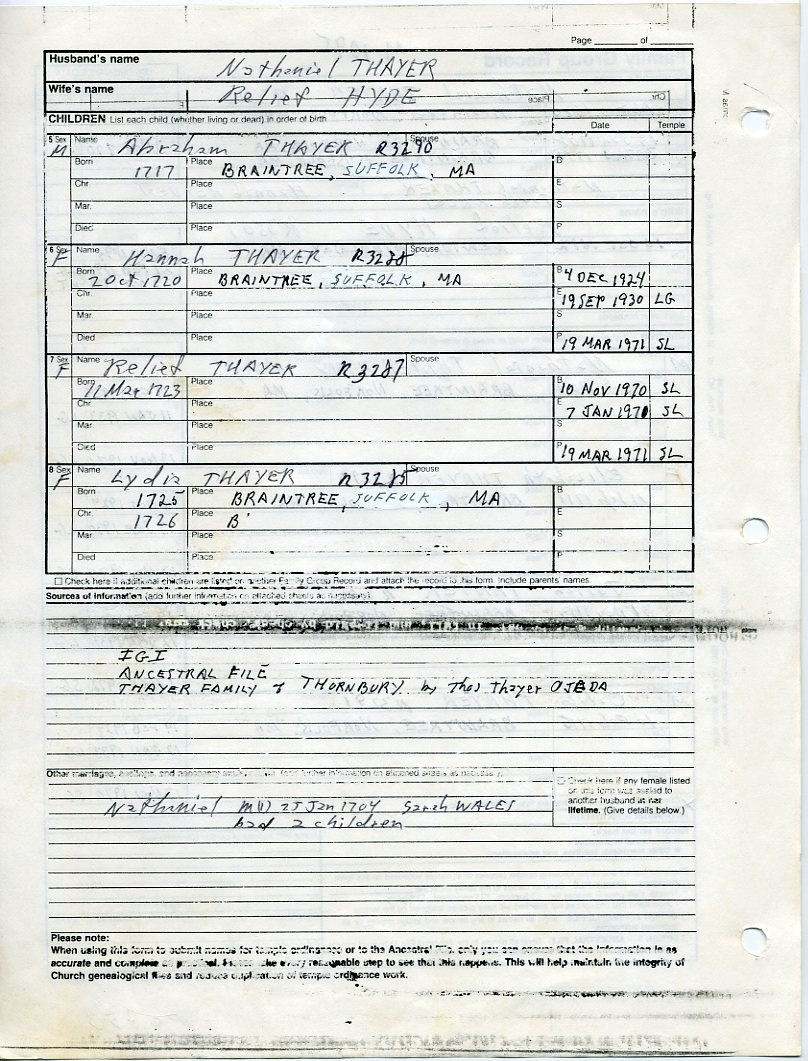 Page ____ of ____
Husband's name Nathaniel THAYER
Wife's name Relief HYDE
CHILDREN List each child (whether living or dead) in order of birth Date Temple
5 Sex M Name Abraham THAYER R3290 Spouse
Born 1717 Place BRAINTREE, SUFFOLK, MA B
Chr. Place E
Mar. Place S
Died Place P
6 Sex F Name Hannah THAYER R3288 Spouse
Born 2 Oct 1720 Place BRAINTREE, SUFFOLK, MA B 4 DEC 1924
Chr. Place E 19 SEP 1930 LG
Mar. Place S
Died Place P 19 MAR 1971 SL
7 Sex F Name Relief THAYER R3287 Spouse
Born 11 Mar 1723 Place B 10 NOV 1970 SL
Chr. Place E 7 JAN 1971 SL
Mar. Place S
Died Place P 19 MAR 1971 SL
8 Sex F Name Lydia THAYER R3285 Spouse
Born 1725 Place BRAINTREE, SUFFOLK, MA B
Chr. 1726 Place B' E
Mar. Place S
Died Place P
Check here if additional children are listed on another Family Group Record and attach the record to this form. Include parents' names.
Sources of information (add further information on attached sheets as necessary)
IGI
ANCESTRAL FILE
THAYER FAMILY of THORNBURY by Thos Thayer OJEDA
Other marriages, (add further information on attached sheets as necessary)
Check here if any female listed
on this form was sealed to
another husband in her
lifetime. (Give details below.)
Nathaniel m(1) 25 Jan 1704 Sarah WALES
had 2 children
Please note:
When using this form to submit names for temple ordinances or to the Ancestral File, only you can ensure that the information is as
accurate and complete as practical. Please take every reasonable step to see that this happens. This will help maintain the integrity of
Church genealogical files and reduce duplication of temple ordinance work.